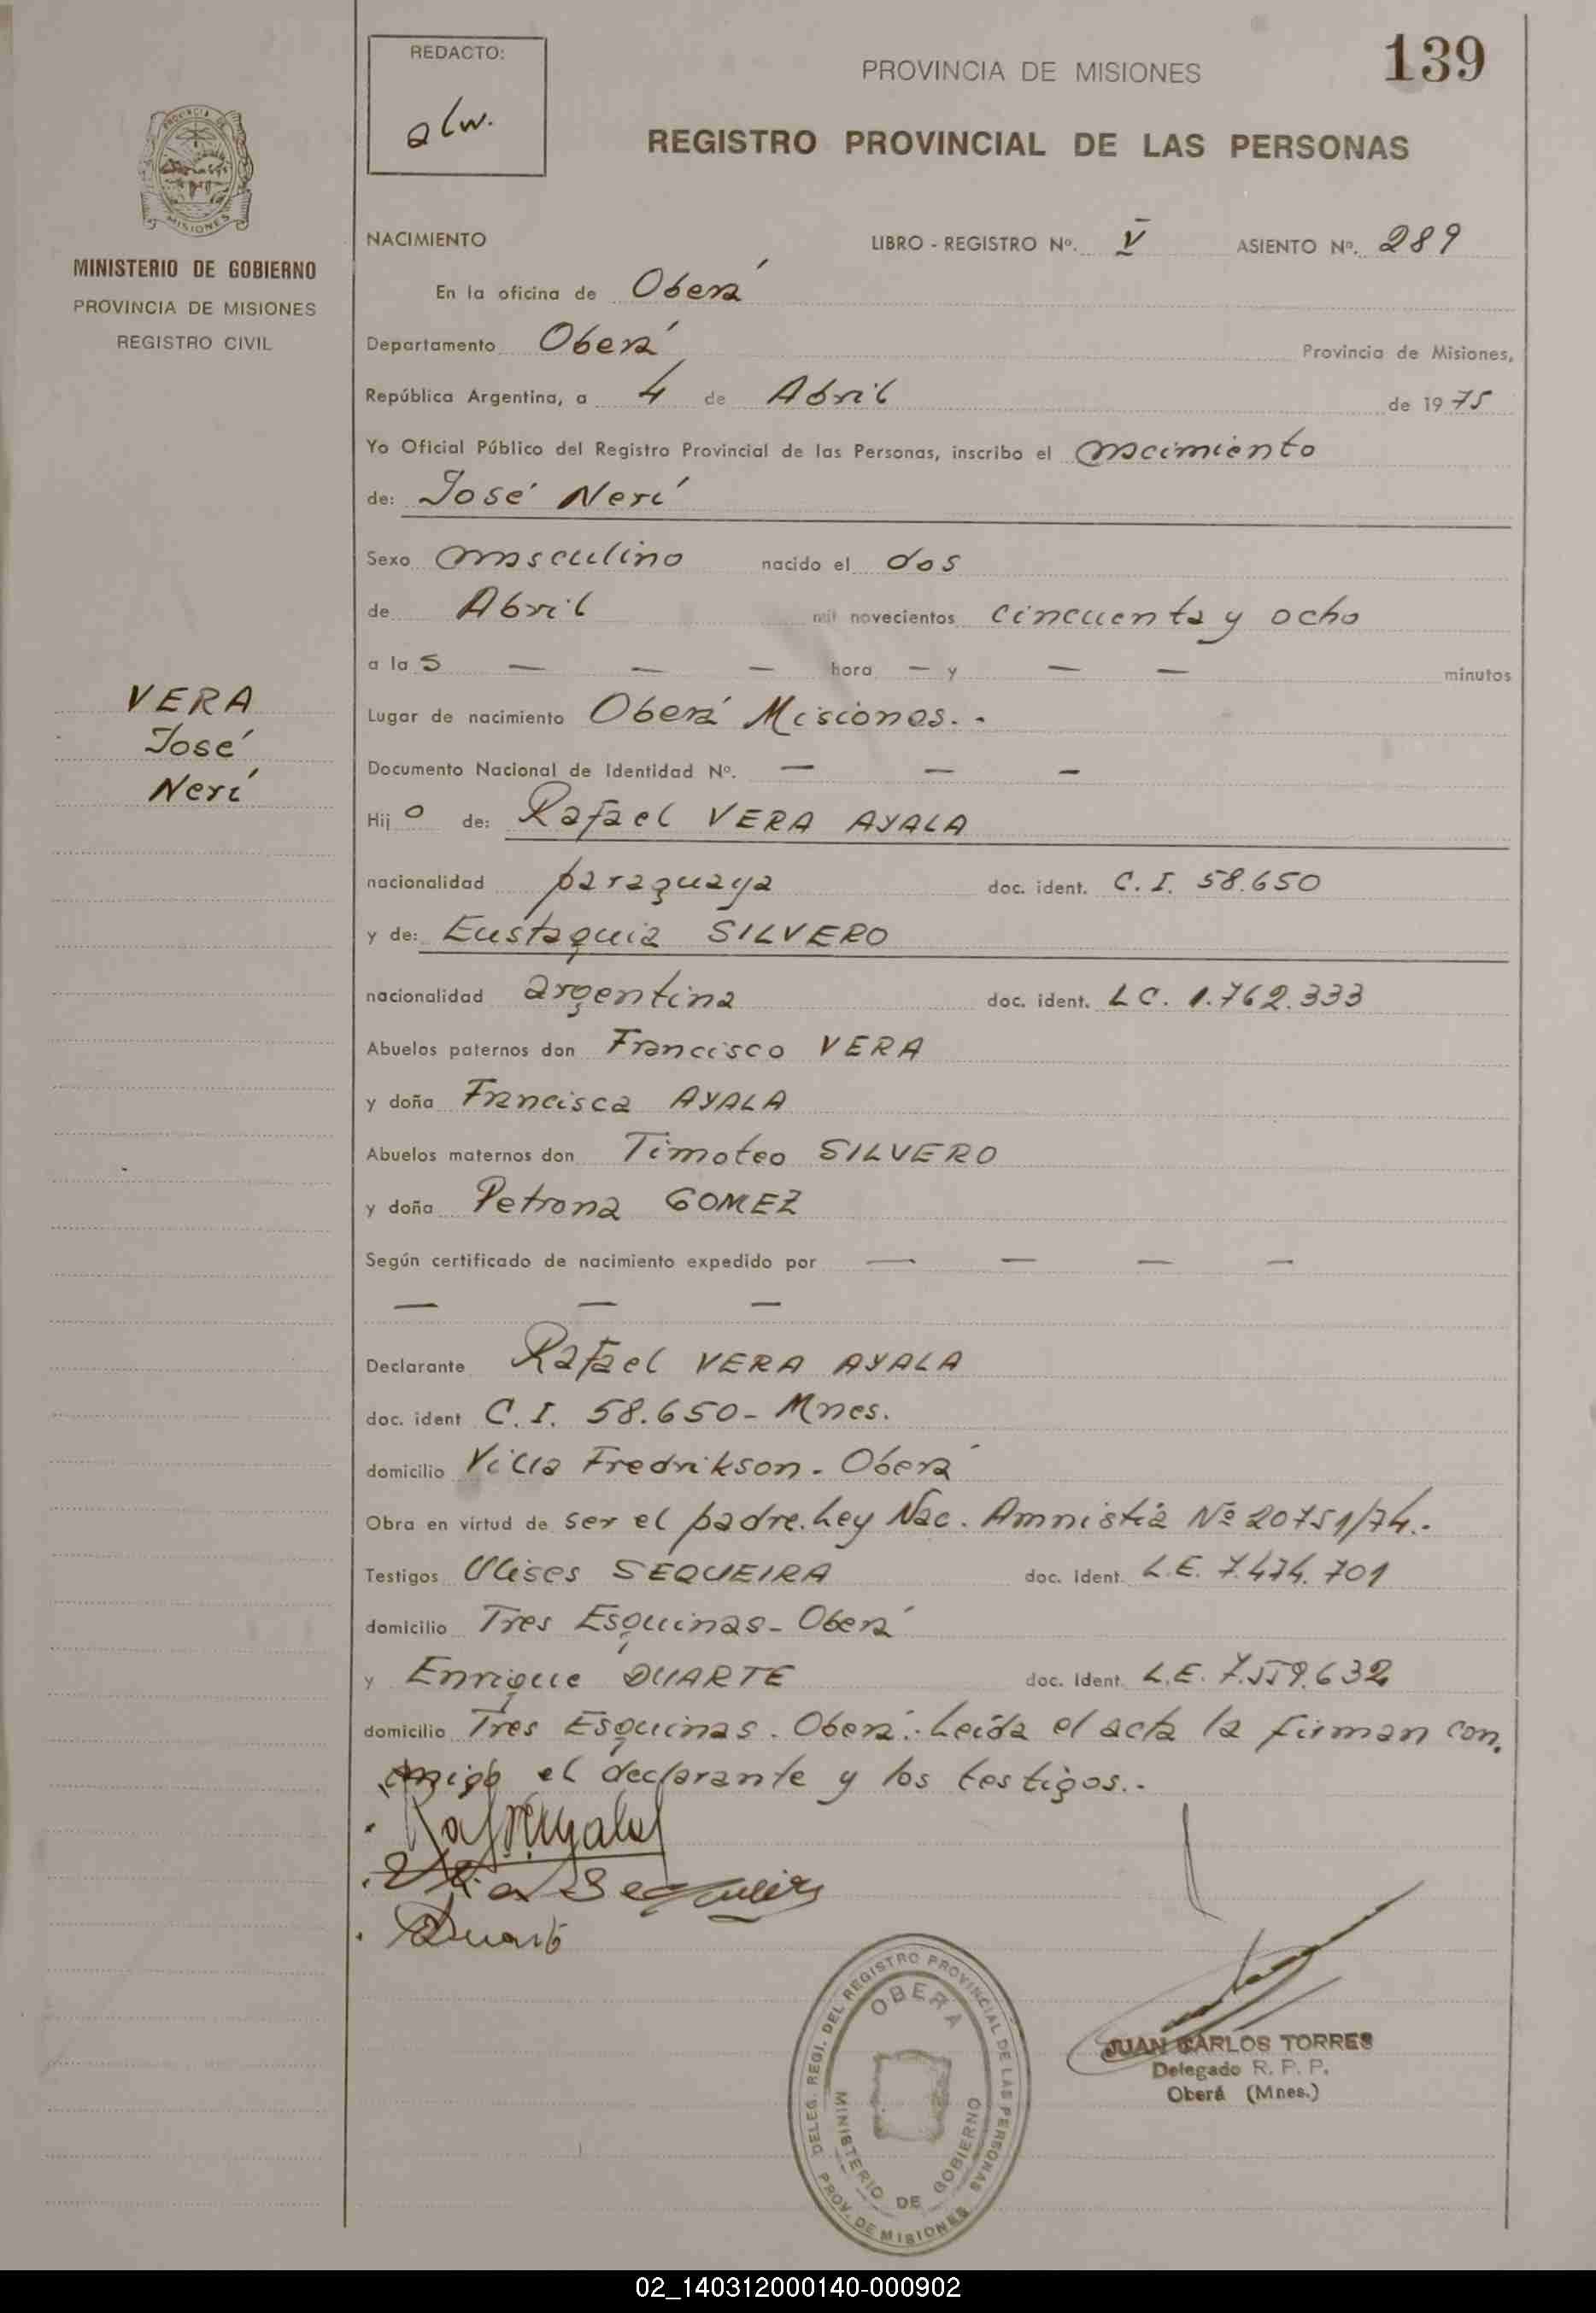 139
REDACTO:
alw.
PROVINCIA DE MISIONES
REGISTRO PROVINCIAL DE LAS PERSONAS
PROVINCIA DE
MISIONES
MINISTERIO DE GOBIERNO
PROVINCIA DE MISIONES
REGISTRO CIVIL
NACIMIENTO LIBRO - REGISTRO Nº. V ASIENTO Nº. 289
En la oficina de Oberá
Departamento Oberá Provincia de Misiones,
República Argentina, a 4 de Abril de 1975
Yo Oficial Público del Registro Provincial de las Personas, inscribo el nacimiento
de: José Nerí
Sexo masculino nacido el dos
de Abril mil novecientos cincuenta y ocho
a la s — — — hora — y — — minutos
VERA
José
Nerí
Lugar de nacimiento Oberá Misiones.-
Documento Nacional de Identidad Nº. — — —
Hij o de: Rafael VERA AYALA
nacionalidad paraguaya doc. ident. C. I. 58.650
y de: Eustaquia SILVERO
nacionalidad argentina doc. ident. L C. 1.762.333
Abuelos paternos don Francisco VERA
y doña Francisca AYALA
Abuelos maternos don Timoteo SILVERO
y doña Petrona GOMEZ
Según certificado de nacimiento expedido por — — — —
— — —
Declarante Rafael VERA AYALA
doc. ident C. I. 58.650- Mnes.
domicilio Villa Fredrikson. Oberá
Obra en virtud de ser el padre. Ley Nac. Amnistía Nº 20751/74.-
Testigos Ulises SEQUEIRA doc. Ident. L.E. 7.474.701
domicilio Tres Esquinas- Oberá
y Enrique DUARTE doc. Ident. L.E. 7.559.632
domicilio Tres Esquinas. Oberá.- Leída el acta la firman con.
migo el declarante y los testigos.-
Sequeira
Duarte
DELEG. REGI. DEL REGISTRO PROVINCIAL DE LAS PERSONAS
OBERA
MINISTERIO DE GOBIERNO
PROV. DE MISIONES
JUAN CARLOS TORRES
Delegado R. P. P.
Oberá (Mnes.)
02_140312000140-000902